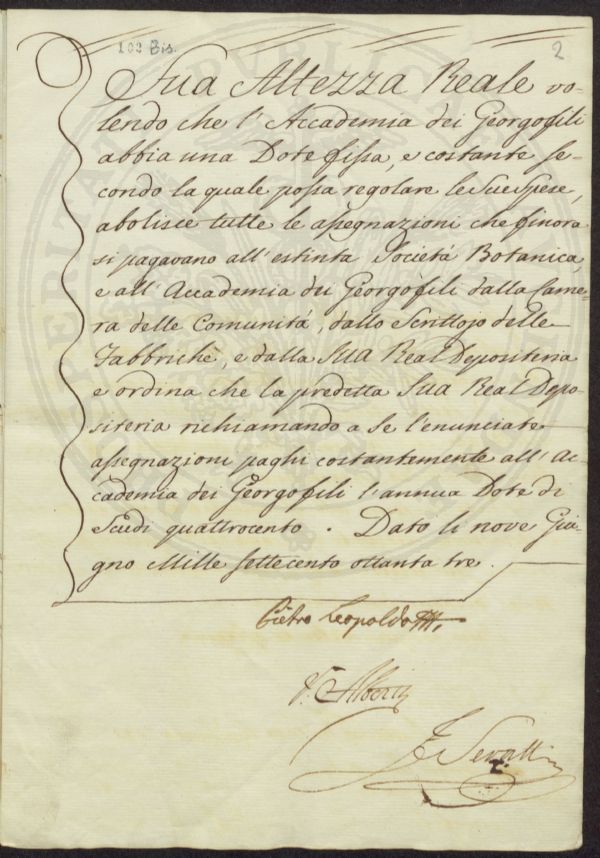 108 Bis.
2
Sua Altezza Reale vo-
lendo che l'Accademia dei Georgofili
abbia una Dote fissa, e costante se-
condo la quale possa regolare le Sue Spese,
abolisce tutte le assegnazioni che finora
si pagavano all'estinta Società Botanica,
e all'Accademia dei Georgofili dalla Came-
ra delle Comunità, dallo Scrittojo delle
Fabbriche, e dalla Sua Real Depositeria
e ordina che la predetta Sua Real Depo-
siteria richiamando a se l'enunciate
assegnazioni paghi costantemente all'Ac-
cademia dei Georgofili l'annua Dote di
Scudi quattrocento. Dato li nove Giu-
gno Mille settecento ottanta tre.
Pietro Leopoldo
V. Alberti